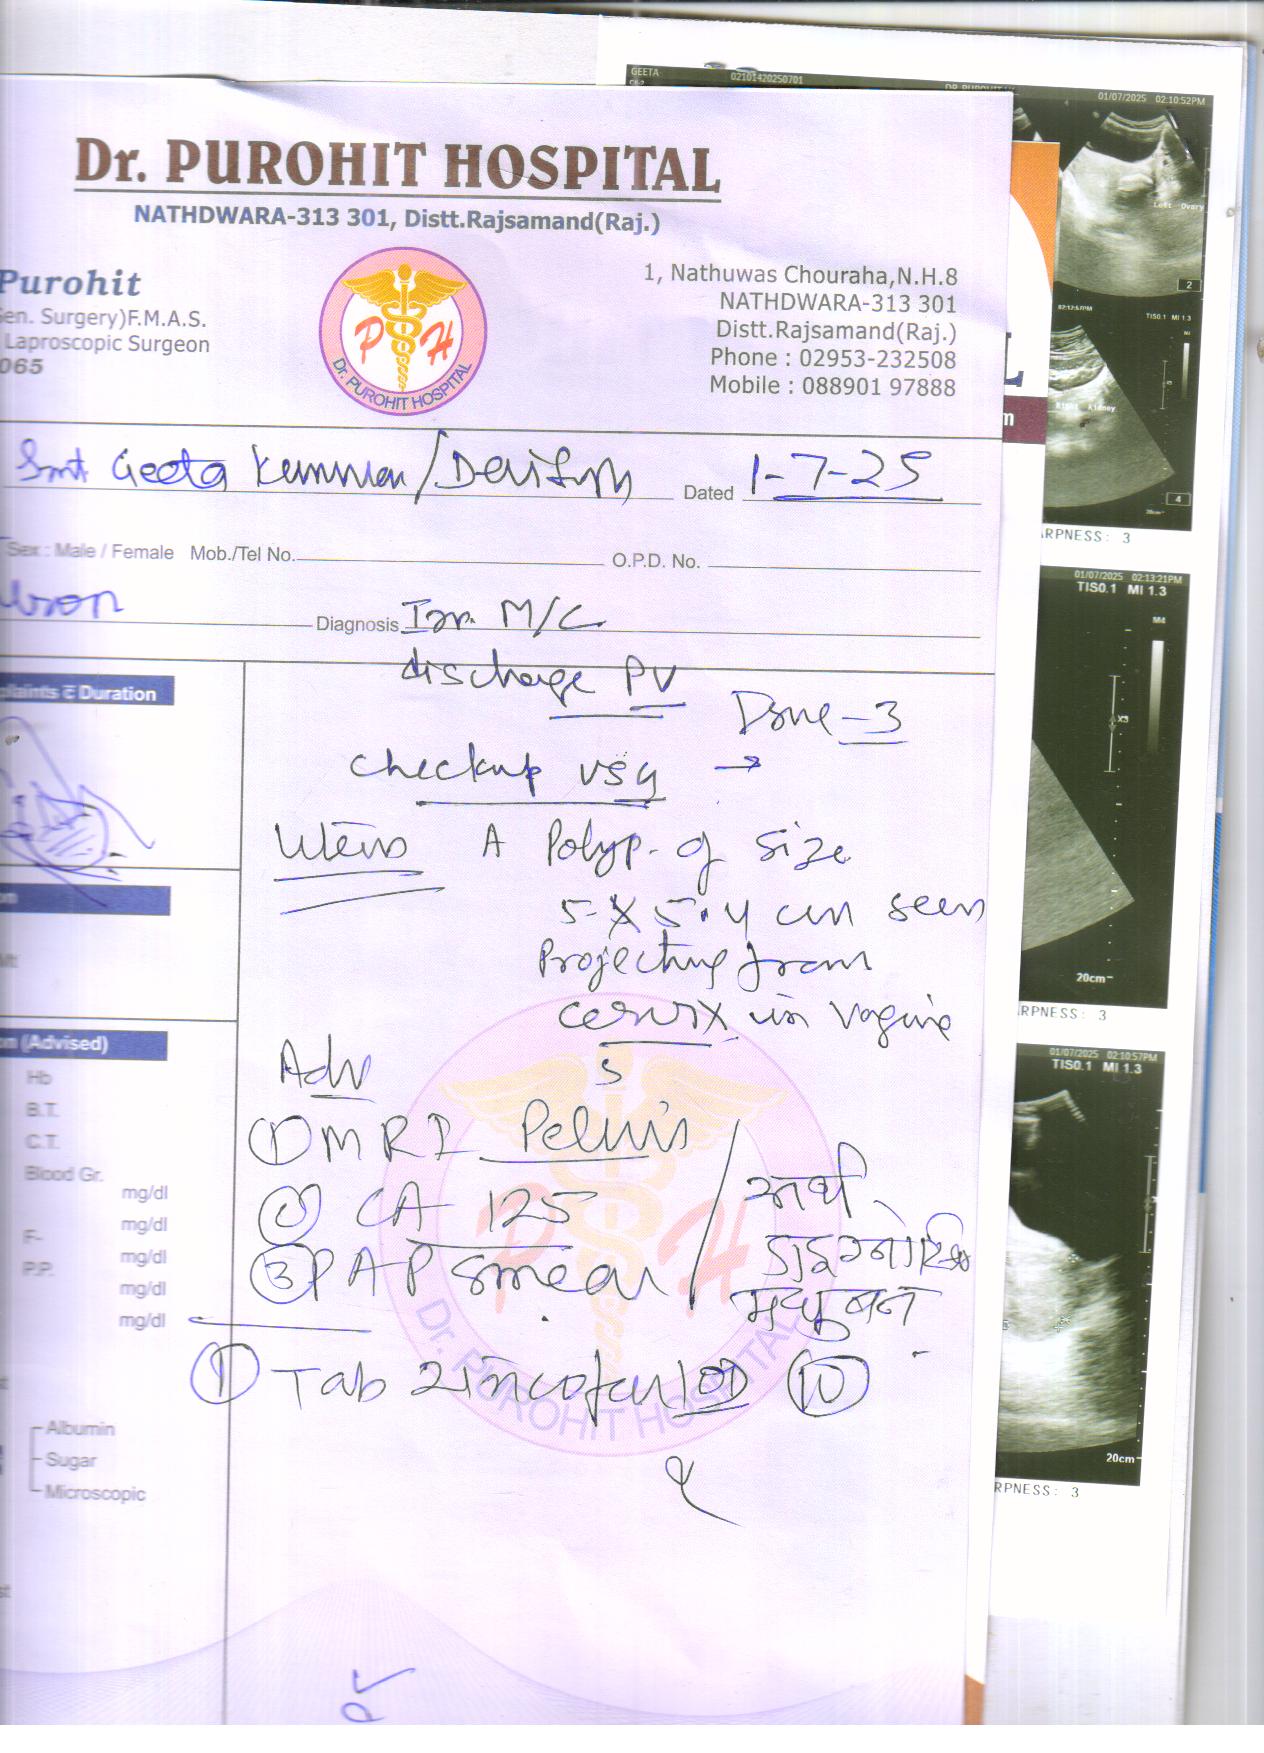 GEETA 02101420250701
01/07/2025 02:10:52PM
Left Ovary
2
02:12:57PM
TIS0.1 MI 1.3
Right Kidney
4
20cm
ARPNESS: 3
01/07/2025 02:13:21PM
TIS0.1 MI 1.3
M4
X3
20cm
RPNESS: 3
01/07/2025 02:10:57PM
TIS0.1 MI 1.3
20cm
RPNESS: 3
L
m
Dr. PUROHIT HOSPITAL
NATHDWARA-313 301, Distt.Rajsamand(Raj.)
Purohit
Gen. Surgery)F.M.A.S.
Laproscopic Surgeon
065
P H
Dr. PUROHIT HOSPITAL
1, Nathuwas Chouraha,N.H.8
NATHDWARA-313 301
Distt.Rajsamand(Raj.)
Phone : 02953-232508
Mobile : 088901 97888
Smt Geeta / Dated 1-7-25
Sex : Male / Female Mob./Tel No. O.P.D. No.
Diagnosis Irr. M/C
discharge PV
-3
checkup USG →
Uterus A Polyp. of size
5 X 5.4 cm seen
Projecting from
cervix in vagina
Adv
① MRI Pelvis
CA 125
③ PAP smear
अर्थ
डाइग्नोस्टिक
मधुबन
① Tab OD 10
plaints c̄ Duration
on (Advised)
Hb
B.T.
C.T.
Blood Gr.
mg/dl
mg/dl
F- mg/dl
P.P. mg/dl
mg/dl
Albumin
Sugar
Microscopic
P H
Dr. PUROHIT HOSPITAL